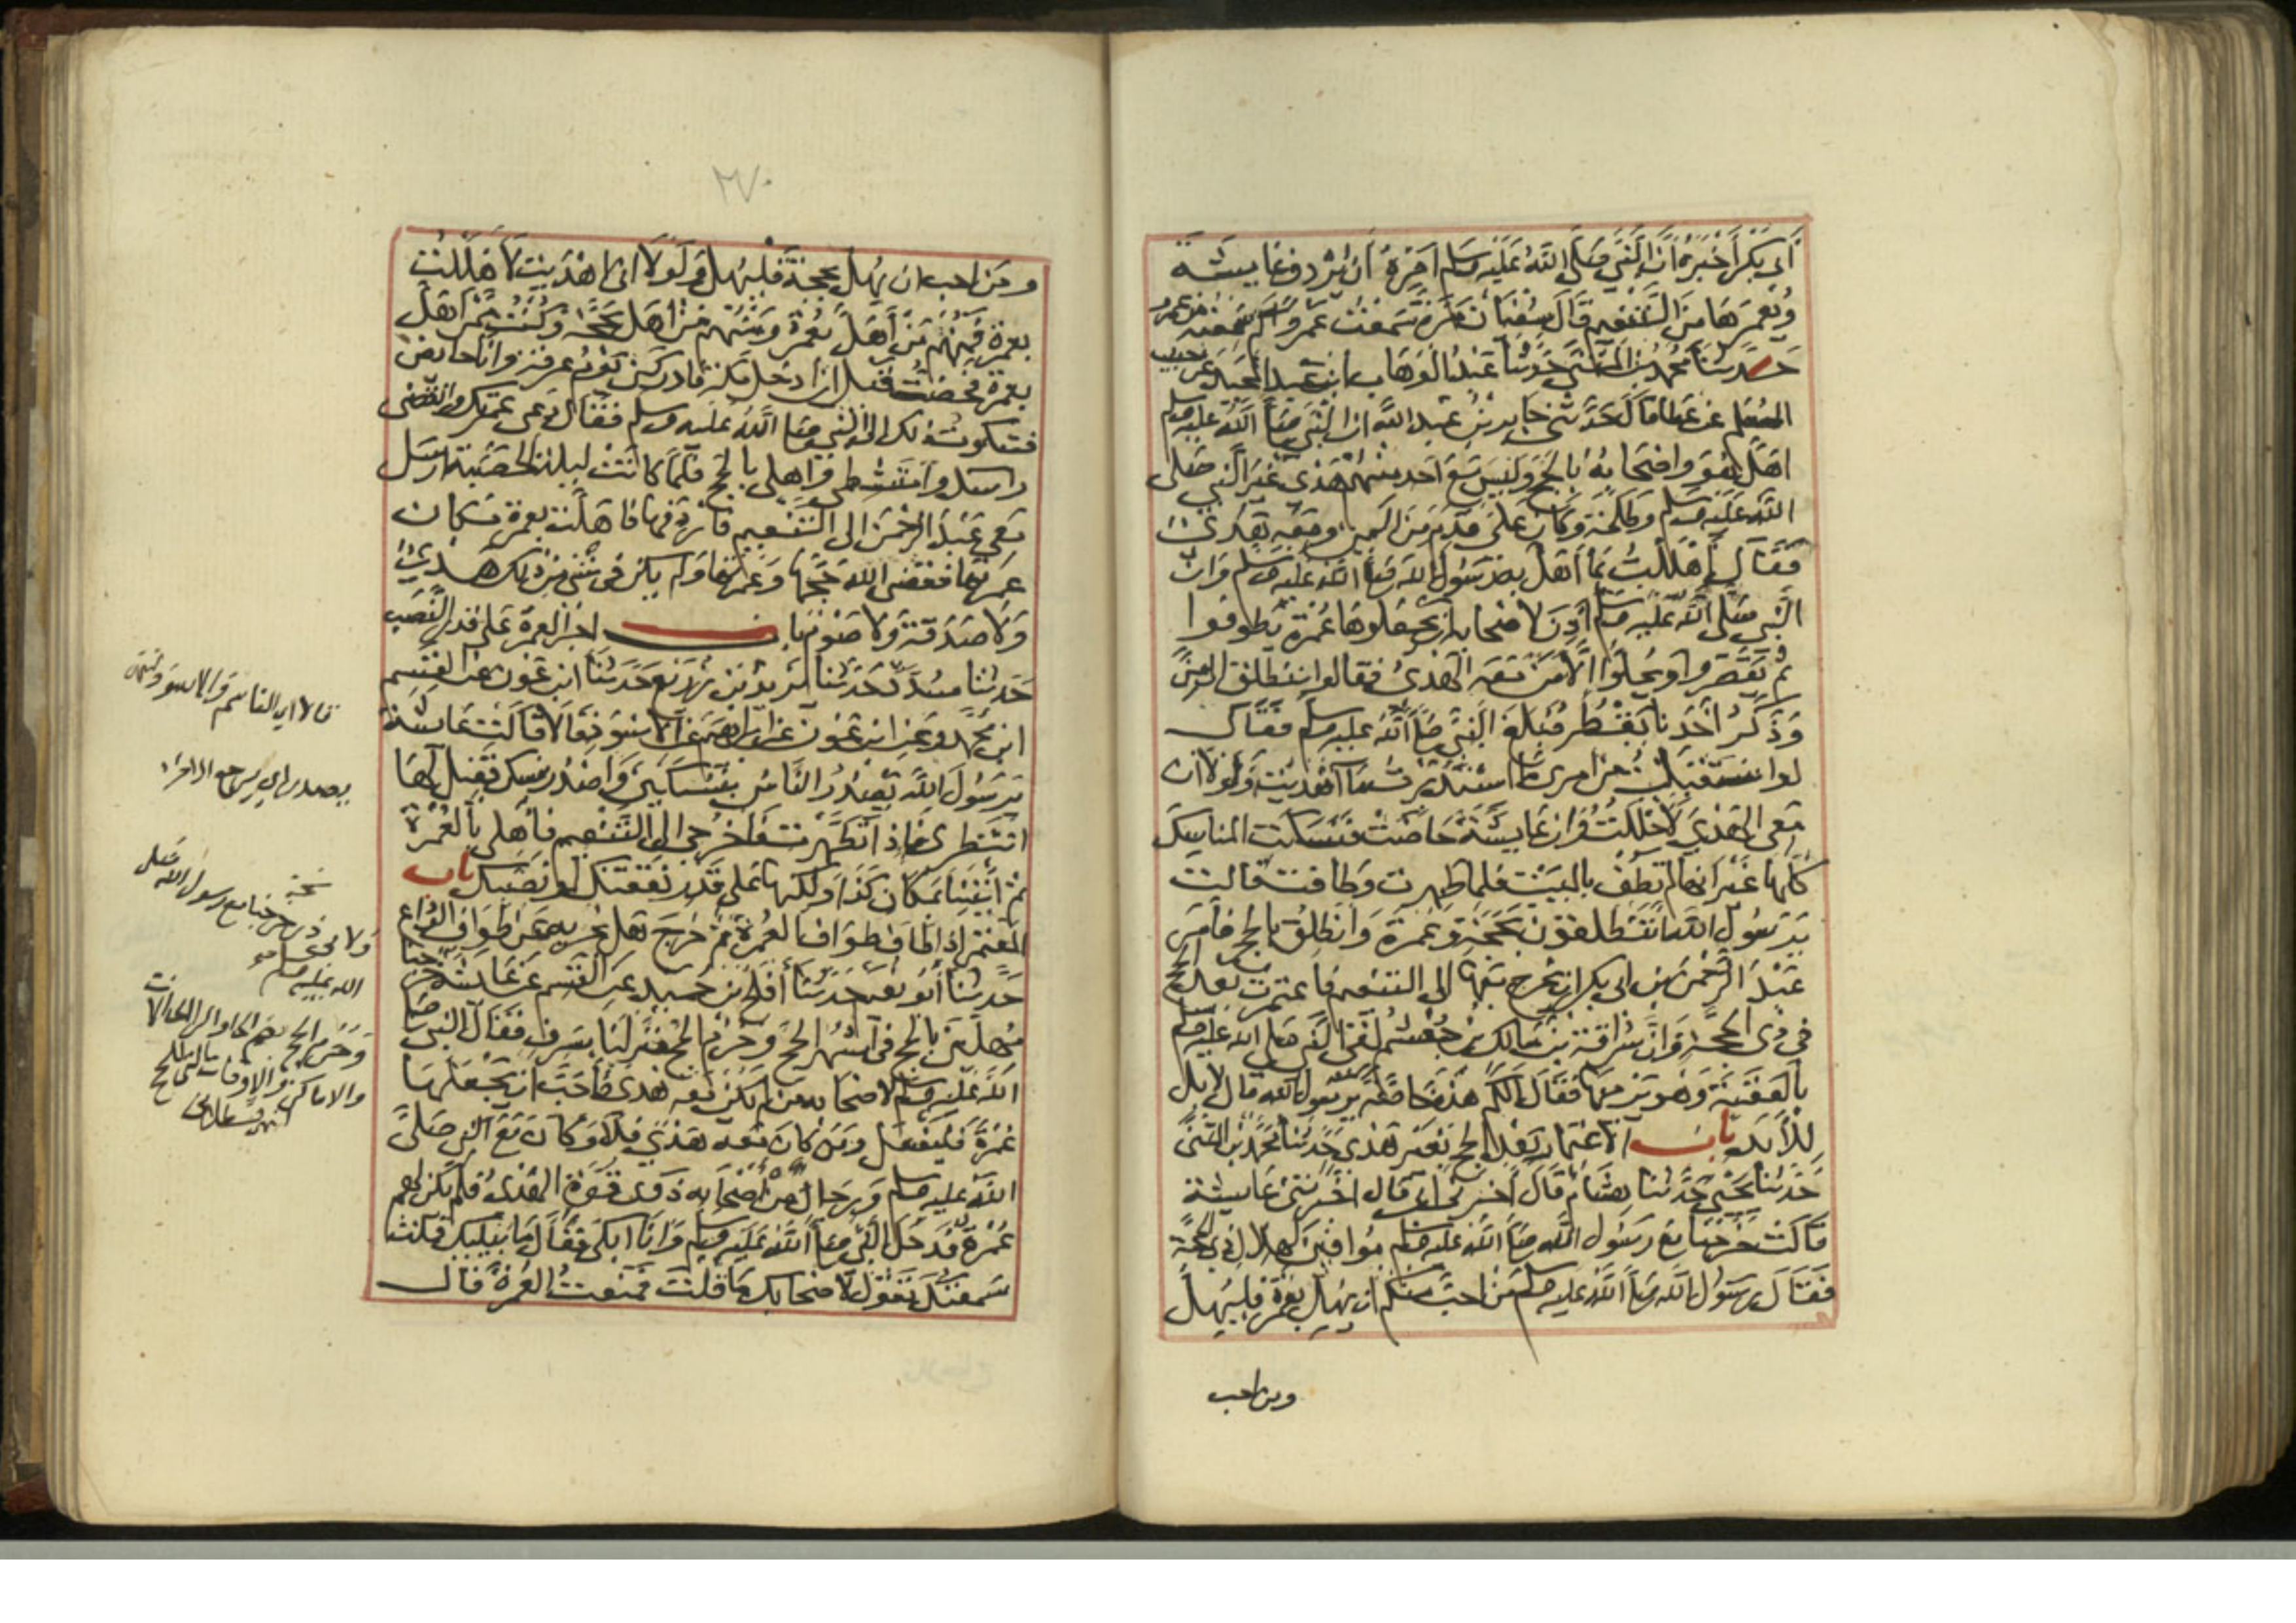 أبي بكر أخبره أن النبي صلى الله عليه وسلم أمره أن يردف عايشة
ويعمرها من التنعيم قال سفيان مرة سمعت عمرو كم سمعته من عمرو
حدثنا محمد بن المثنى حدثنا عبد الوهاب ابن عبد المجيد عن حبيب
المعلم عن عطا قال حدثني جابر بن عبد الله ان النبي صلى الله عليه وسلم
اهل هو واصحابه بالحج وليس مع احد منهم هدى غير النبي صلى
الله عليه وسلم وطلحة وكان على قدم من اليمن ومعه هدى
فقال أهللت بما أهل به رسول الله صلى الله عليه وسلم وان
النبي صلى الله عليه وسلم أذن لاصحابه ان يجعلوها عمرة يطوفوا
ثم يقصروا ويحلوا الا من معه الهدى فقالوا ننطلق الى منى
وذكر أحدنا يقطر فبلغ النبي صلى الله عليه وسلم فقال
لو استقبلت من امري ما استدبرت ما اهديت ولولا ان
معي الهدي لاحللت وان عايشة حاضت فنسكت المناسك
كلها غير انها لم تطف بالبيت فلما طهرت وطافت قالت
يرسول الله أتنطلقون بحجة وعمرة وانطلق بالحج فأمر
عبد الرحمن بن ابي بكر ان يخرج معها الى التنعيم فاعتمرت بعد الحج
في ذي الحجة وان سراقة بن مالك بن جعشم لقى النبي صلى الله عليه وسلم
بالعقبة وهو يرميها فقال الكم هذه خاصة يرسول الله قال لا بل
للأبد باب الاعتمار بعد الحج بغير هدى حدثنا محمد بن المثنى
حدثنا يحيى حدثنا هشام قال أخبرني أبي قال اخبرتني عايشة
قالت خرجنا مع رسول الله صلى الله عليه وسلم موافين لهلال ذي الحجة
فقال رسول الله صلى الله عليه وسلم من احب منكم ان يهل بعمرة فليهل
ومن احب
٢٧٠
ومن احب ان يهل بحجة فليهل ولولا انى اهديت لاهللت
بعمرة فمنهم من أهل بعمرة ومنهم من اهل بحجة وكنت ممن اهل
بعمرة فحضت قبل ان ادخل مكة فادركني يوم عرفة وانا حايض
فشكوت ذلك الى النبي صلى الله عليه وسلم فقال دعي عمرتك وانقضى
راسك وامتشطي واهلي بالحج فلما كانت ليلة الحصبة ارسل
معي عبد الرحمن الى التنعيم فاردفها فاهلت بعمرة مكان
عمرتها فقضى الله حجها وعمرتها ولم يكن في شئ من ذلك هدي
ولا صدقة ولا صوم باب اجر العمرة على قدر النصب
حدثنا مسدد حدثنا يزيد بن زريع حدثنا ابن عون عن القسم
ابن محمد وعن ابن عون عن ابراهيم عن الاسود قالا قالت عايشة
يرسول الله يصدر الناس بنسكين واصدر بنسك فقيل لها
انتظري فاذا طهرت فاخرجي الى التنعيم فأهلي بالعمرة
ثم ائتينا بمكان كذا ولكنها على قدر نفقتك او نصبك باب
المعتمر اذا طاف طواف العمرة ثم خرج هل يجزيه عن طواف الوداع
حدثنا أبو نعيم حدثنا أفلح بن حميد عن القسم عن عايشة خرجنا
مهلين بالحج في أشهر الحج وحرم الحج فنزلنا بسرف فقال النبي صلى
الله عليه وسلم لاصحابه من لم يكن معه هدى فأحب ان يجعلها
عمرة فليفعل ومن كان معه هدي فلا وكان مع النبي صلى
الله عليه وسلم ورجال من أصحابه ذوى قوة الهدى فلم تكن لهم
عمرة فدخل النبي صلى الله عليه وسلم وانا ابكي فقال ما يبكيك قلت
سمعتك تقول لاصحابك ما قلت فمنعت العمرة قال
قالا اي القاسم والاسود
نسخة
ولابي ذر خرجنا مع رسول الله صلى
الله عليه وسلم
وحرم الحج بضم الحا والرا الحالات
والاماكن والاوقات التي للحج